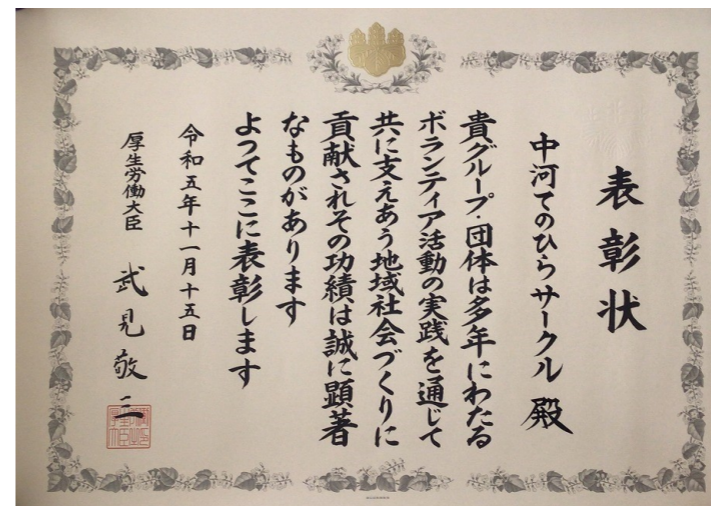 表彰状
中河てのひらサークル 殿
貴グループ・団体は多年にわたる
ボランティア活動の実践を通じて
共に支えあう地域社会づくりに
貢献されその功績は誠に顕著
なものがあります
よってここに表彰します
令和五年十一月十五日
厚生労働大臣 武見敬三